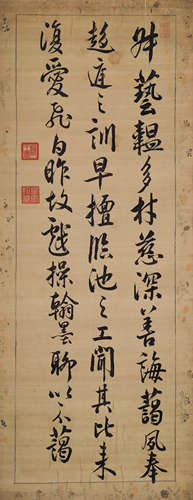 藝韞多材慈深善誨藹夙奉
趨庭之訓早擅臨池之工聞其比来
復愛飛白昨故戲操翰墨聊以示藹